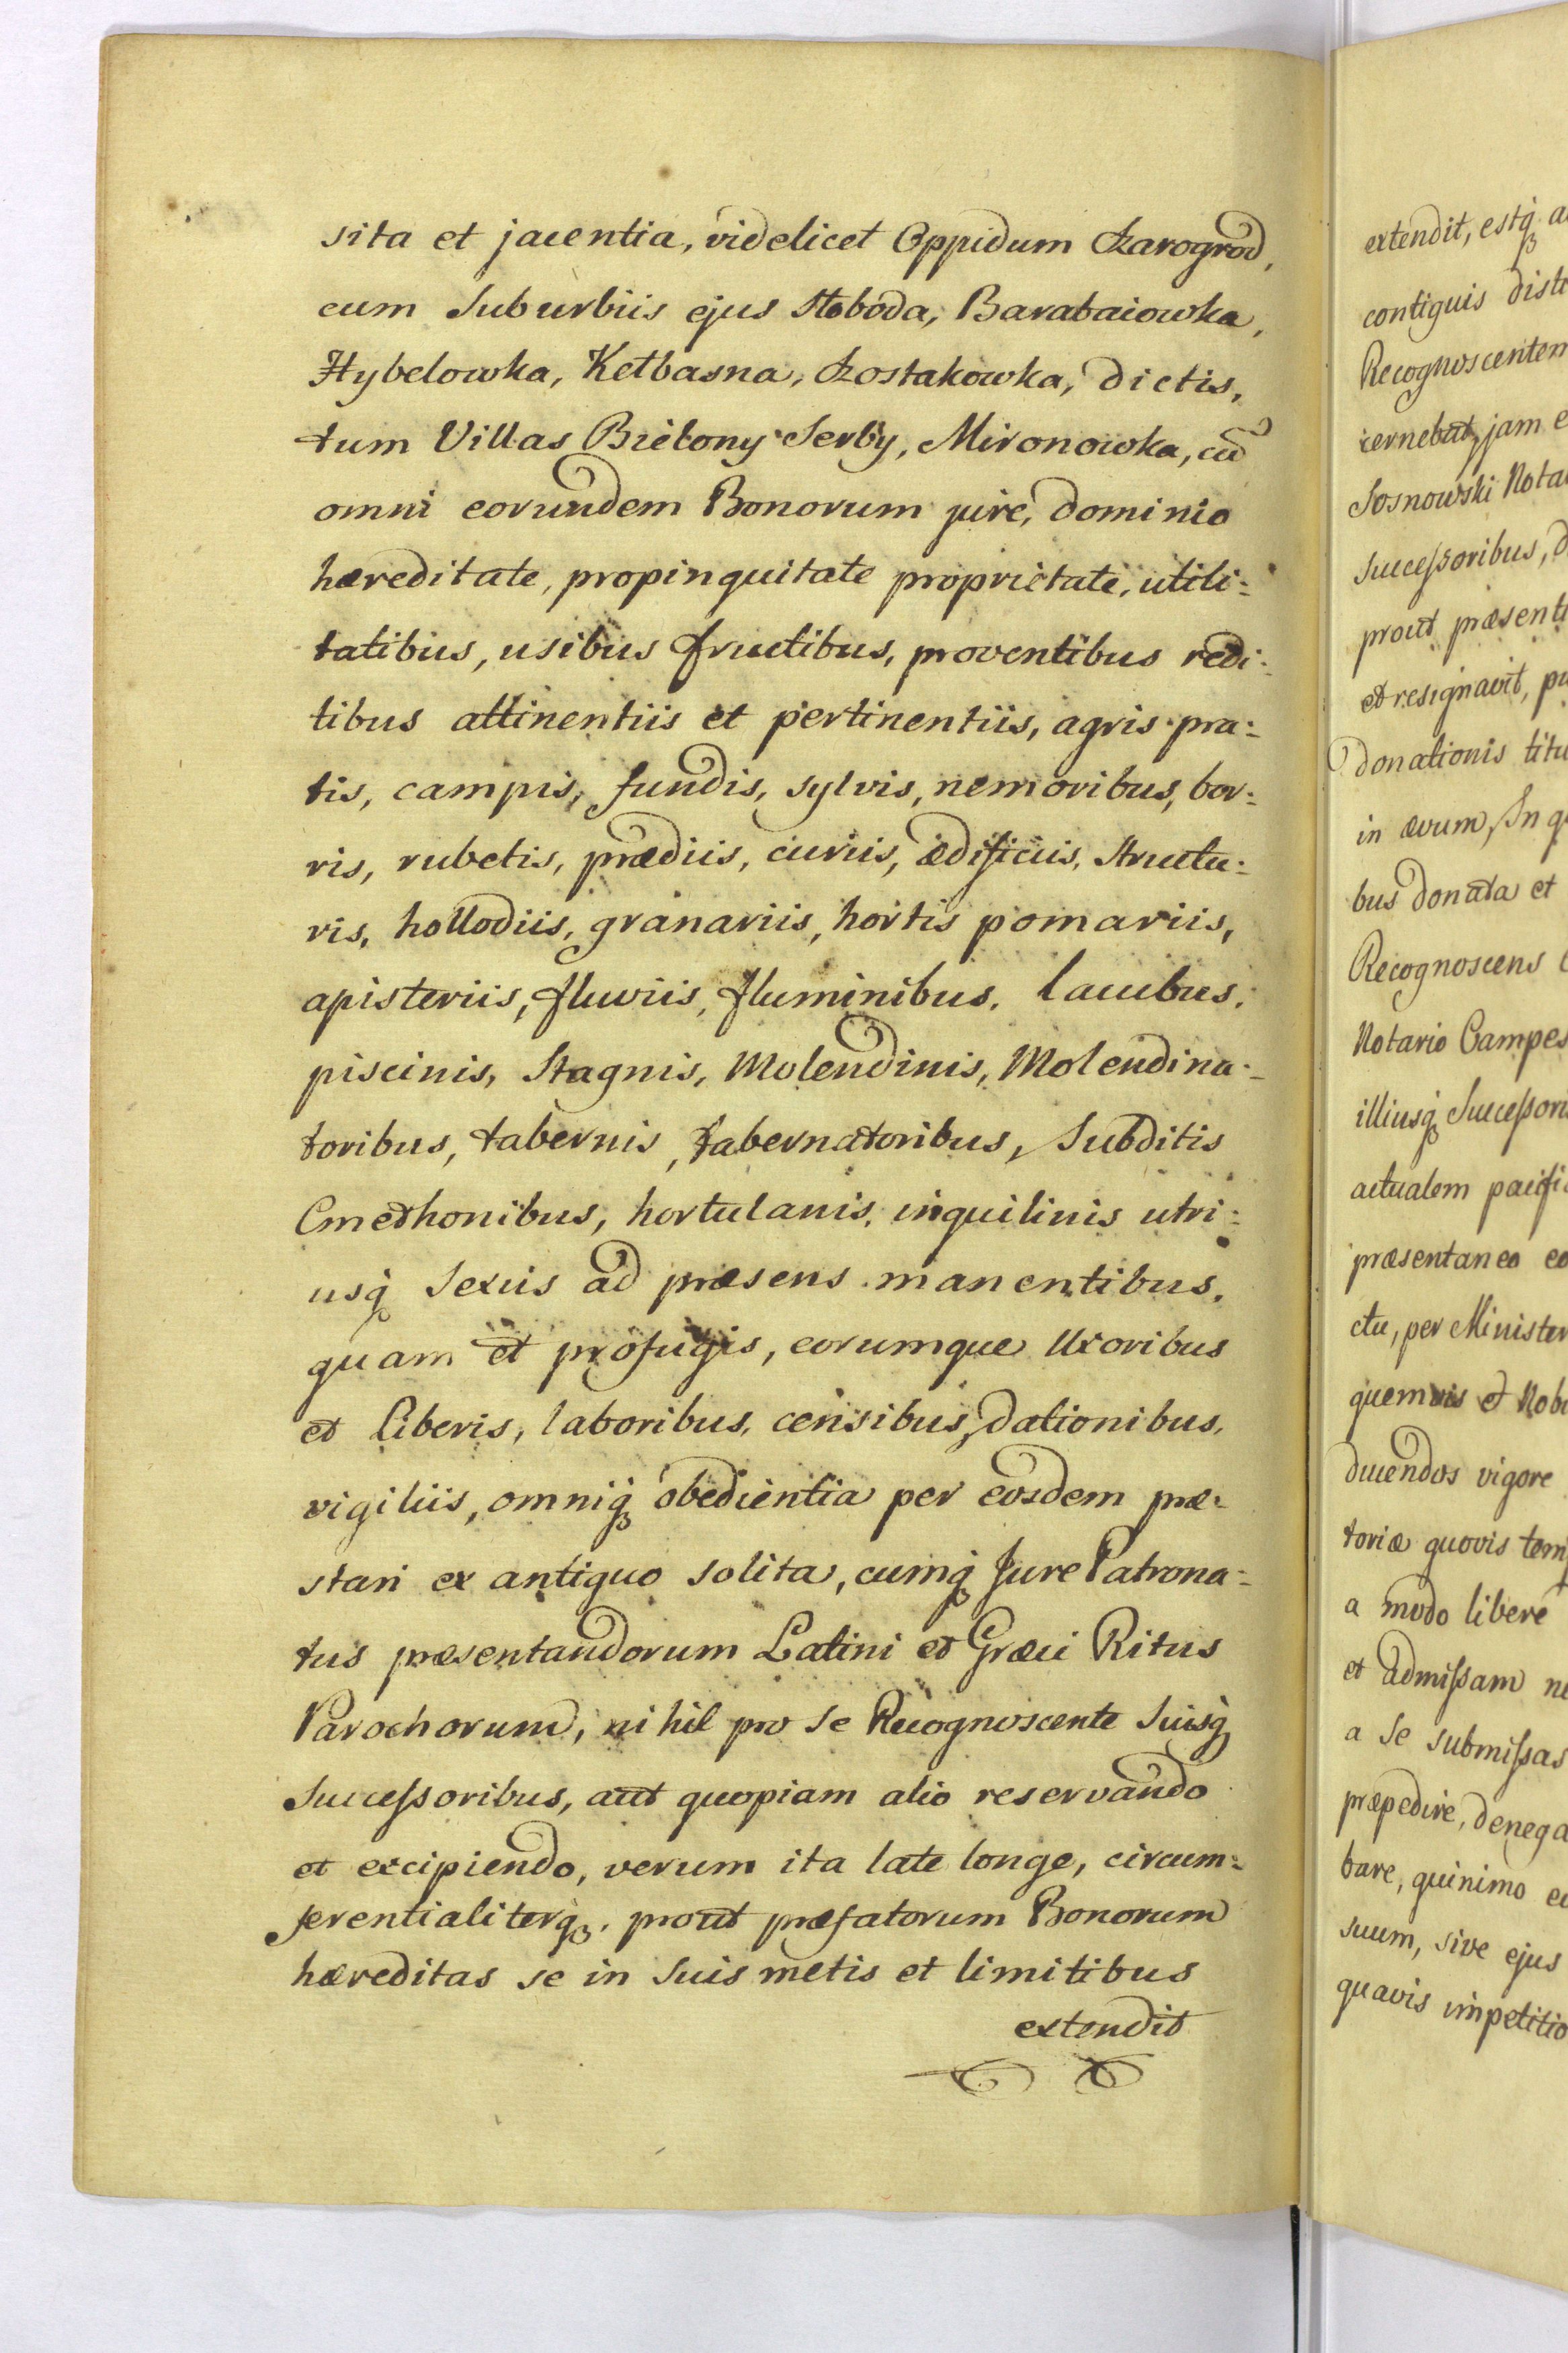 sita et jacentia, videlicet Oppidum Czarogrod,
cum Suburbiis ejus Słoboda, Barabaiowka,
Hybelowka, Ketbasna, Czostakowka, dictis,
tum Villas Bielony Serby, Mironowka, cũ
omni eorundem Bonorum jure, dominio
hæreditate, propinquitate proprietate, utili:
tatibus, usibus fructibus, proventibus redi:
tibus attinentiis et pertinentiis, agris pra:
tis, campis, fundis, sylvis, nemoribus, bor:
ris, rubetis, prædiis, curiis, ædificiis, structu:
ris, hollodiis, granariis, hortis pomariis,
apisteriis, fluviis, fluminibus, lacubus,
piscinis, Stagnis, Molendinis, Molendina:
toribus, tabernis, tabernatoribus, Subditis
Cmethonibus, hortulanis, inquilinis utri:
usq̨ Sexus ad præsens manentibus,
quam et profugis, eorumque Uxoribus
et liberis, laboribus, censibus, dationibus,
vigiliis, omniq̨ obedientia per eosdem præ:
stari ex antiquo solita, cumq̨ Jure Patrona:
tus præsentandorum Latini et Græci Ritus
Parochorum, nihil pro se Recognoscente Suisq̨
Successoribus, aut quopiam alio reservando
et excipiendo, verum ita late longe, circum:
ferentialiterq̨, prout præfatorum Bonorum
hæreditas se in Suis metis et limitibus
extendit
extendit, estq̨
contiguis
Recognoscentem
cernebat, jam
Sosnowski
Successoribus,
prout
et resignavit,
donationis
in ævum, In
bus donata et
Recognoscens
Notario
illiusq̨
actualem
præsentaneo
ctu, per
quemvis et
ducendos vigore
toriæ quovis
a modo libere
et admissam
a Se submissas
præpedire,
bare, quinimo
suum, sive ejus
quavis